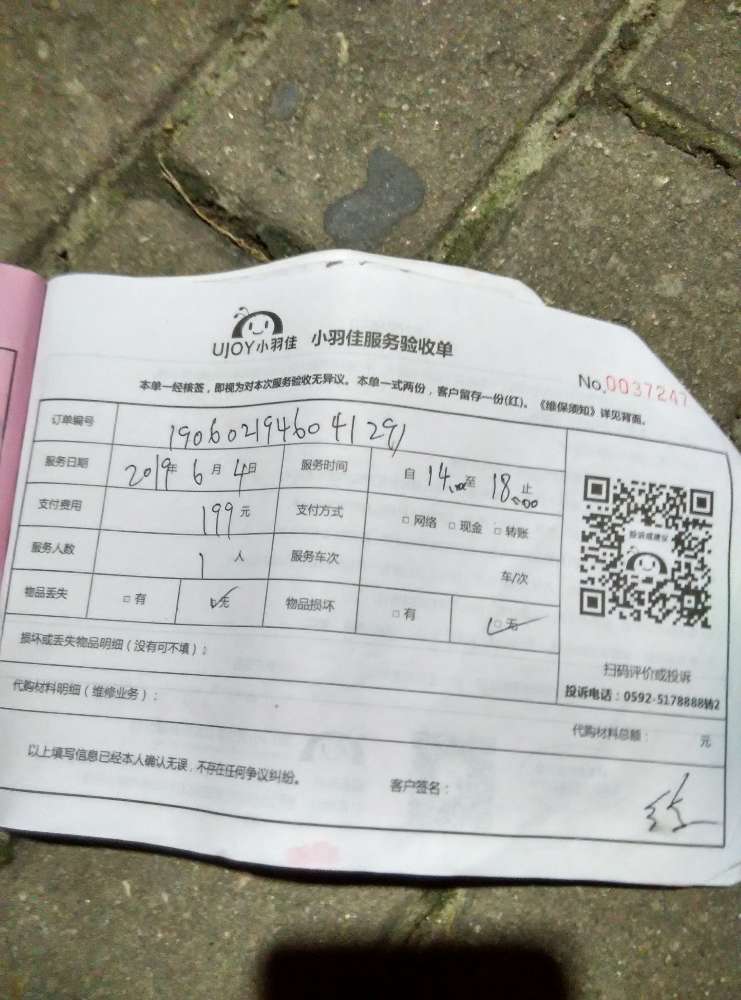 UJOY小羽佳 小羽佳服务验收单
No.0037247
本单一经核签，即视为对本次服务验收无异议。本单一式两份，客户留存一份(红)。《维保须知》详见背面。
订单编号 190602194604129)
服务日期 2019年 6月 4日 服务时间 自 14:00至 18:00止
支付费用 199元 支付方式 □网络 □现金 □转账
服务人数 1人 服务车次 车/次
物品丢失 □有 ☑无 物品损坏 □有 ☑无
投诉或建议
扫码评价或投诉
投诉电话：0592-5178888转2
损坏或丢失物品明细（没有可不填）：
代购材料明细（维修业务）：
代购材料总额： 元
以上填写信息已经本人确认无误，不存在任何争议纠纷。
客户签名：